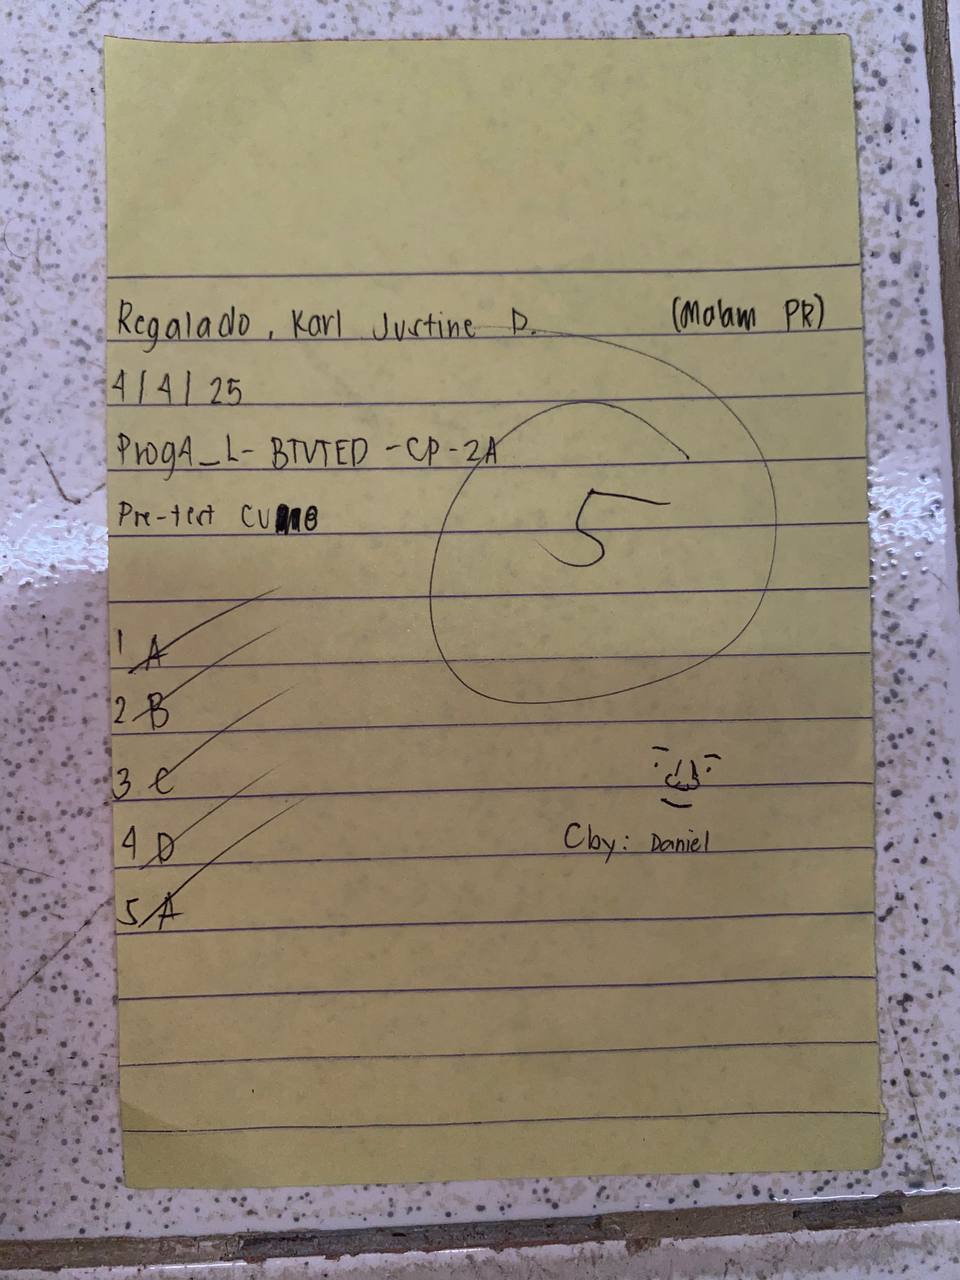 Regalado, Karl Justine D. (Malam PR)
4/4/25
Prog4_L-BTVTED-CP-2A
Pre-test
5
1 A
2 B
3 C
4 D
5 A
Cby: Daniel